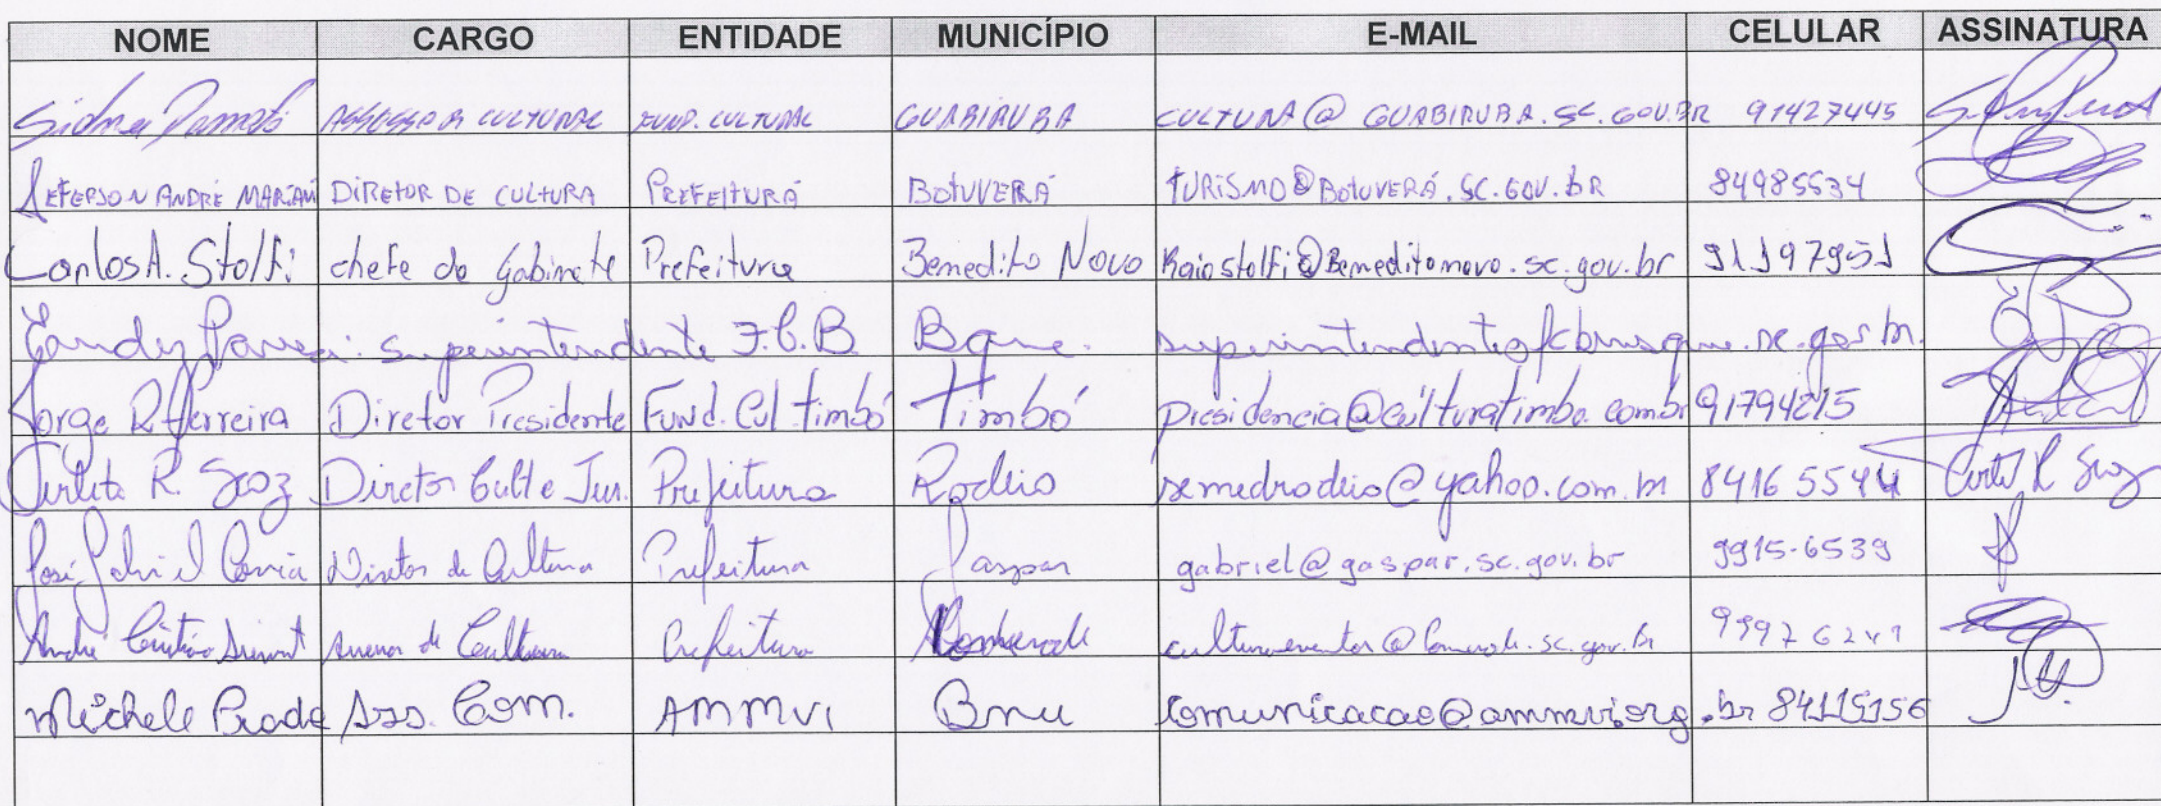 NOME CARGO ENTIDADE MUNICÍPIO E-MAIL CELULAR ASSINATURA
ASSESSOR CULTURAL FUND. CULTURAL GUABIRUBA CULTURA@GUABIRUBA.SC.GOV.BR 91427445
JEFERSON ANDRÉ MARIANI DIRETOR DE CULTURA PREFEITURA BOTUVERÁ TURISMO@BOTUVERÁ.SC.GOV.BR 84985534
Carlos A. Stolfi chefe de Gabinete Prefeitura Benedito Novo Kaiostolfi@Beneditonovo.sc.gov.br 91197951
superintendente F.C.B. Bque. superintendente@fcbrusque.sc.gov.br.
Jorge R Ferreira Diretor Presidente Fund. Cul timbó Timbó presidencia@culturatimbo.com.br 91794215
R. Scoz Diretor Cult e Tur. Prefeitura Rodeio semedrodeio@yahoo.com.br 8416 5544
José Gabriel Diretor de Cultura Prefeitura Gaspar gabriel@gaspar.sc.gov.br 9915-6539
André Cristiano de Cultura Prefeitura
Michele Prade Ass. Com. AMMVI Bnu comunicacao@ammvi.org.br 84115156